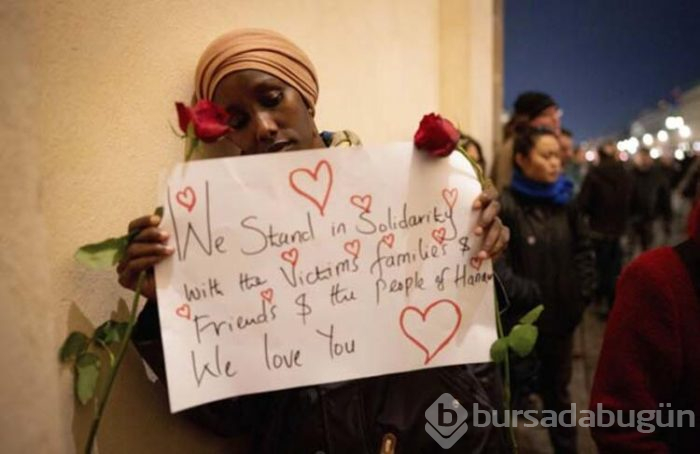 We Stand in Solidarity
with the Victims families &
Friends & the People of Hanau
We love you
bursadabugün